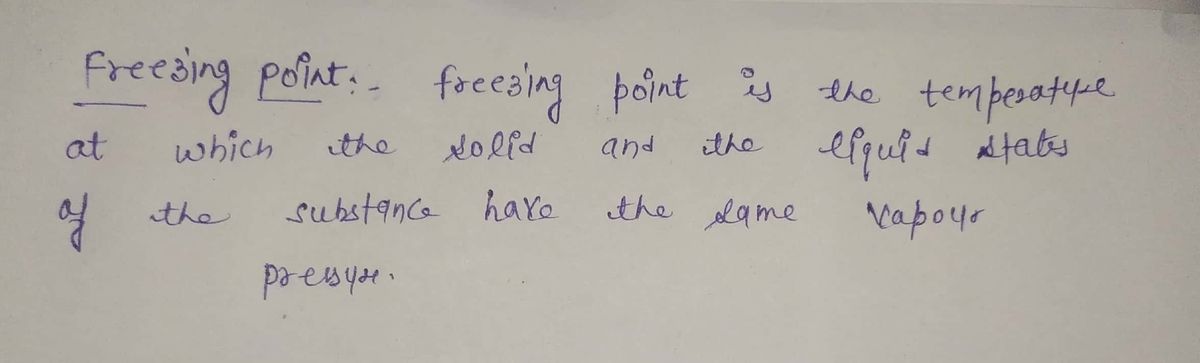 Freezing point:- freezing point is the temperature
at which the solid and the liquid states
of the substance have the same vapour
pressure.